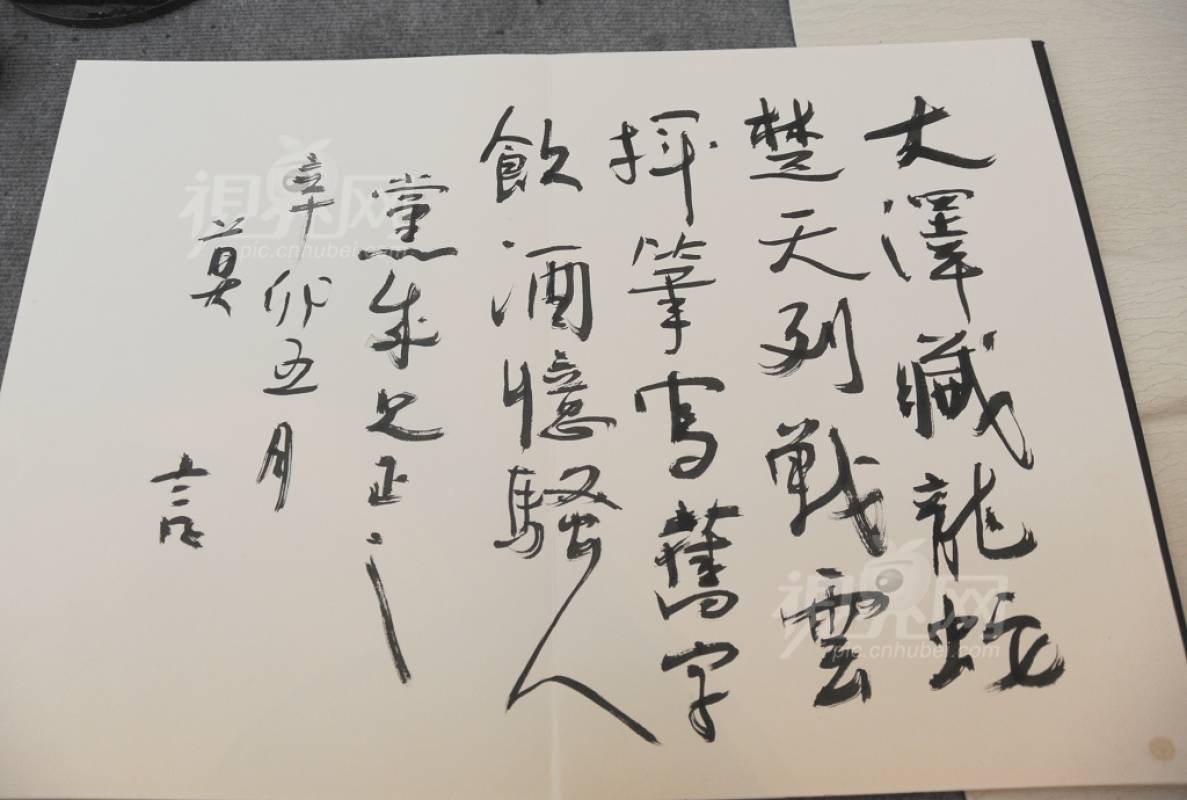 大澤藏龍蛇
楚天列戰雲
揮筆寫舊字
飲酒憶騷人
黨朱兄正之
辛卯五月
莫言
視界网
pic.cnhubei.com
視界网
pic.cnhubei.com